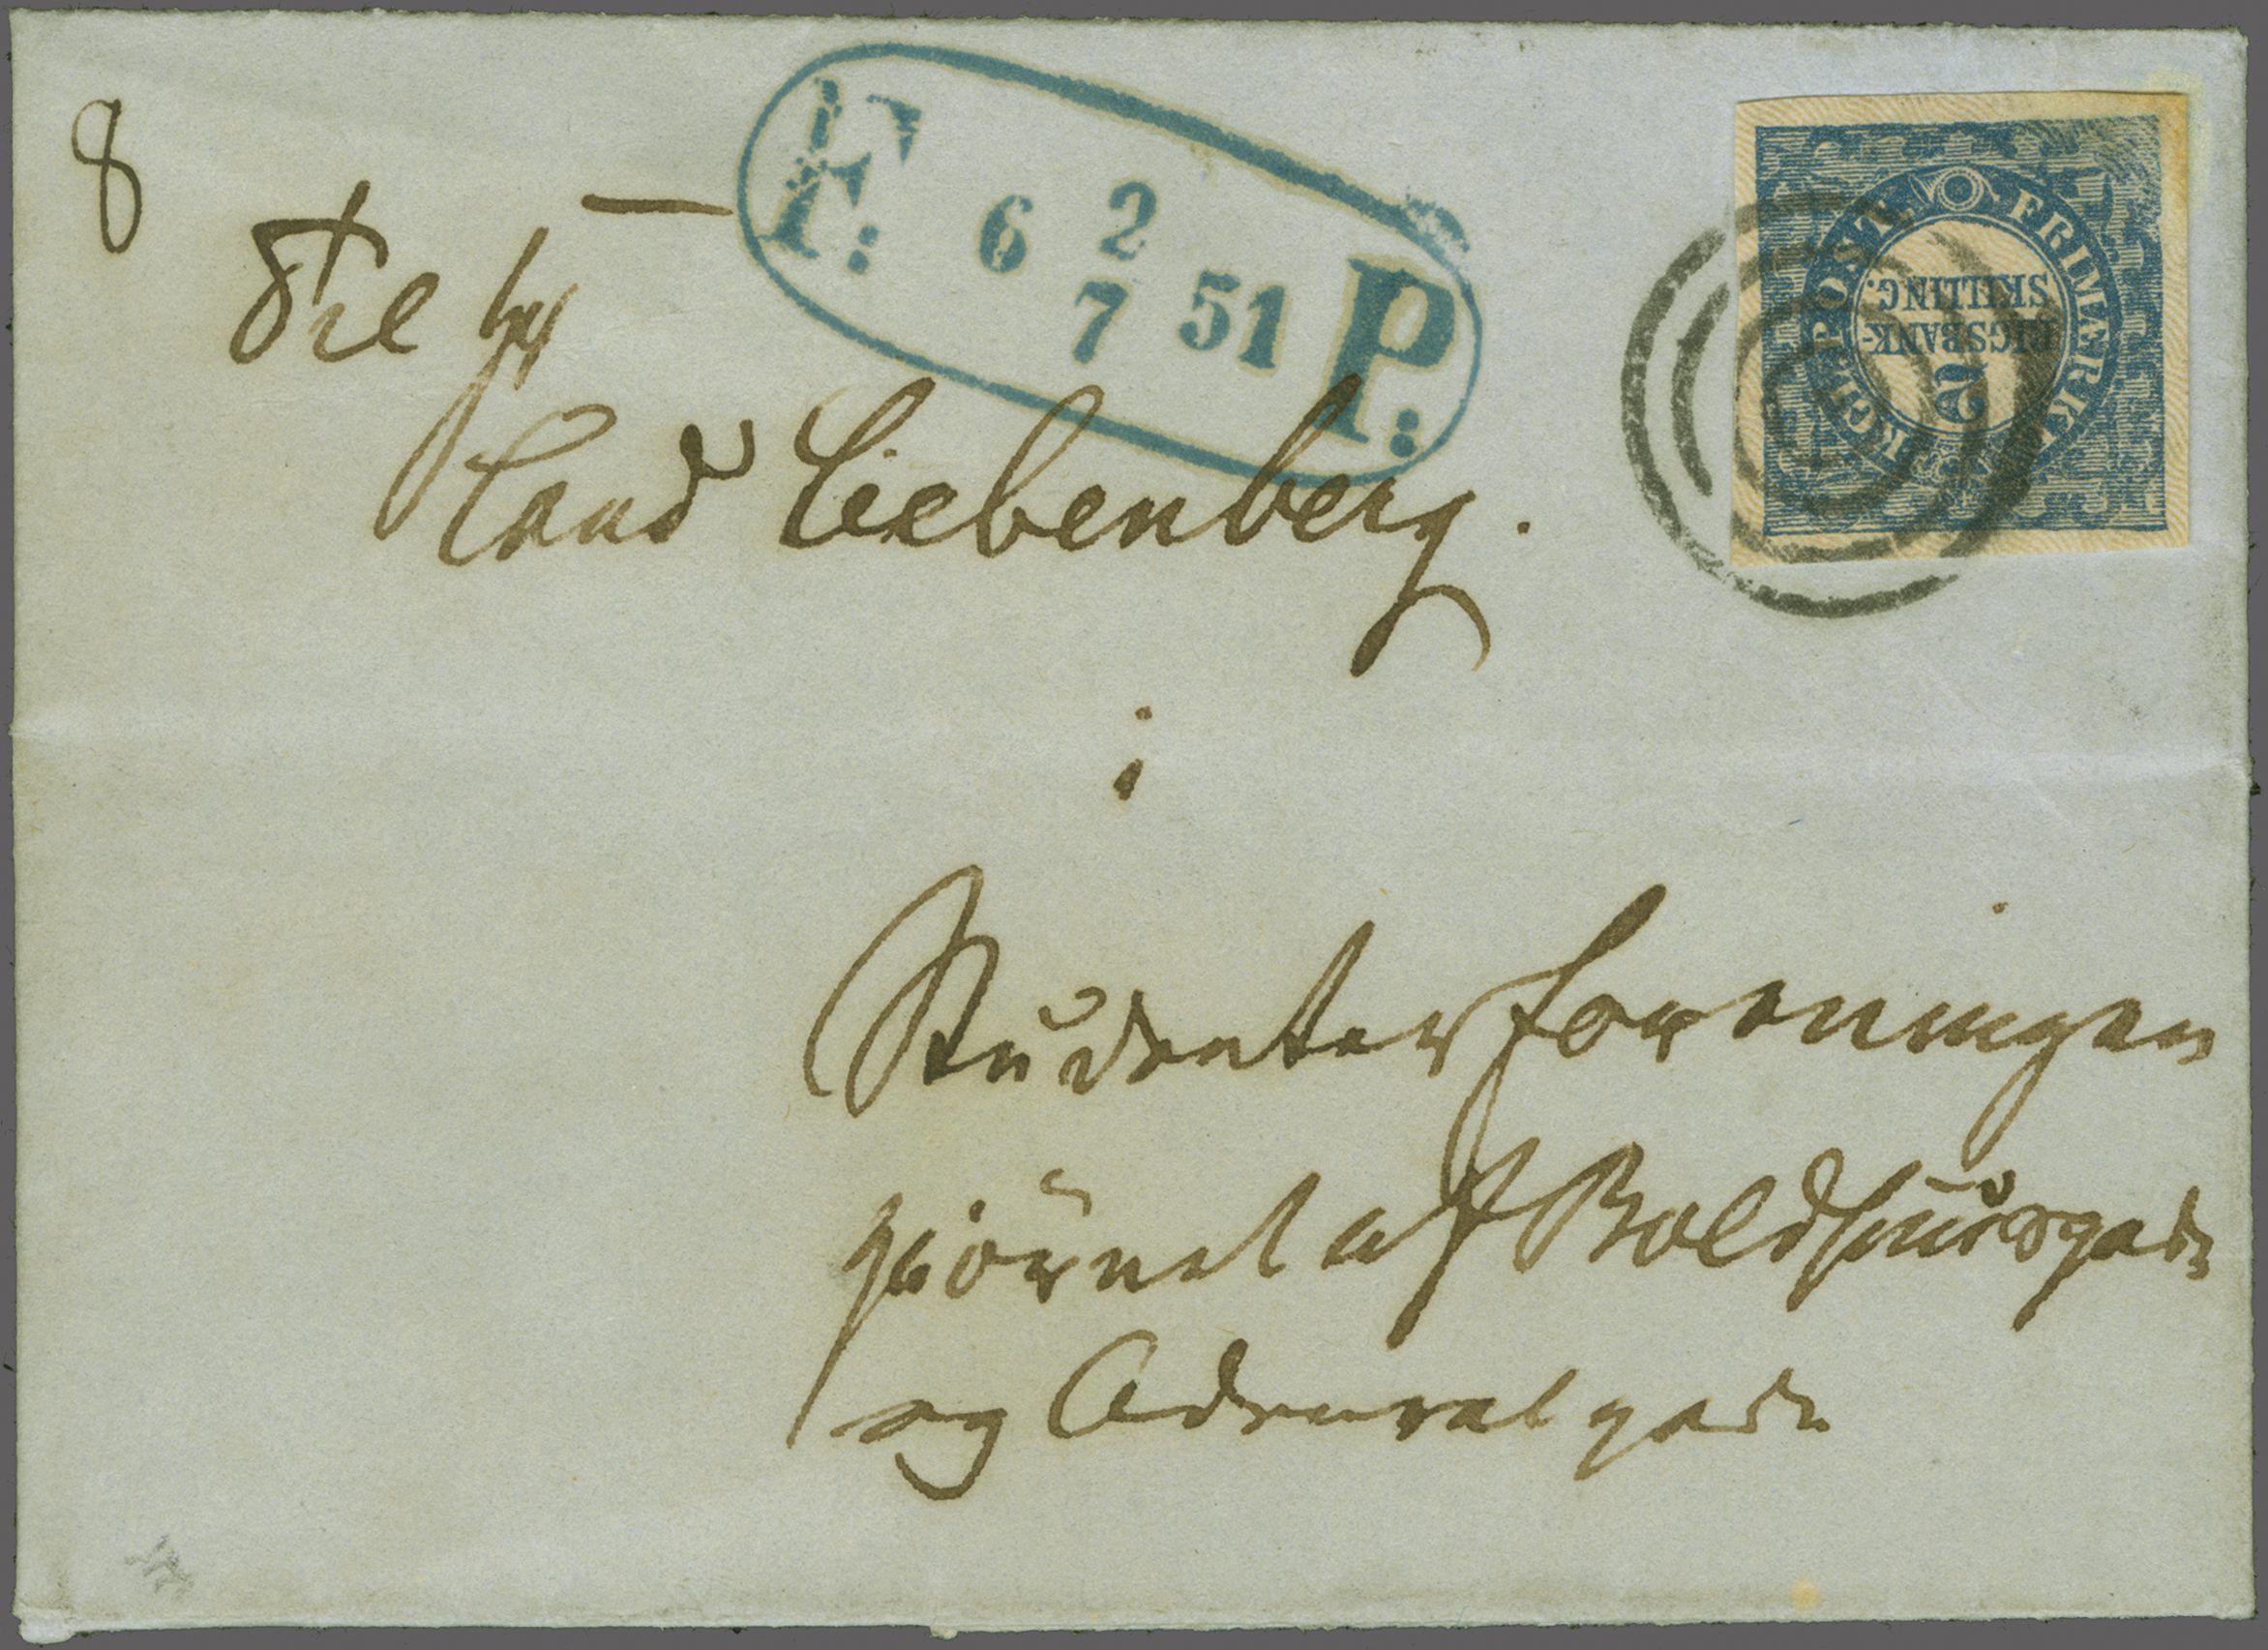 8
F: 6 2/7 51 P:
KGL POST. FRIMÆRKE
2
RIGSBANK-
SKILLING.
Til Hr
Cand Liebenberg.
i
Studenterforeningen
Hiörnet af Boldhuusgade
og Admiralgade